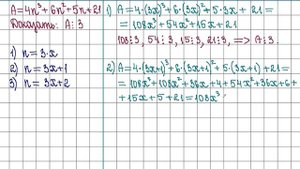 A=4n³+6n²+5n+21
Доказать: A⋮3
1) n=3x
2) n=3x+1
3) n=3x+2
1) A=4·(3x)³+6·(3x)²+5·3x+21=
=108x³+54x²+15x+21
108⋮3, 54⋮3, 15⋮3, 21⋮3, => A⋮3.
2) A=4·(3x+1)³+6·(3x+1)²+5·(3x+1)+21=
=108x³+108x²+36x+4+54x²+36x+6+
+15x+5+21=108x³